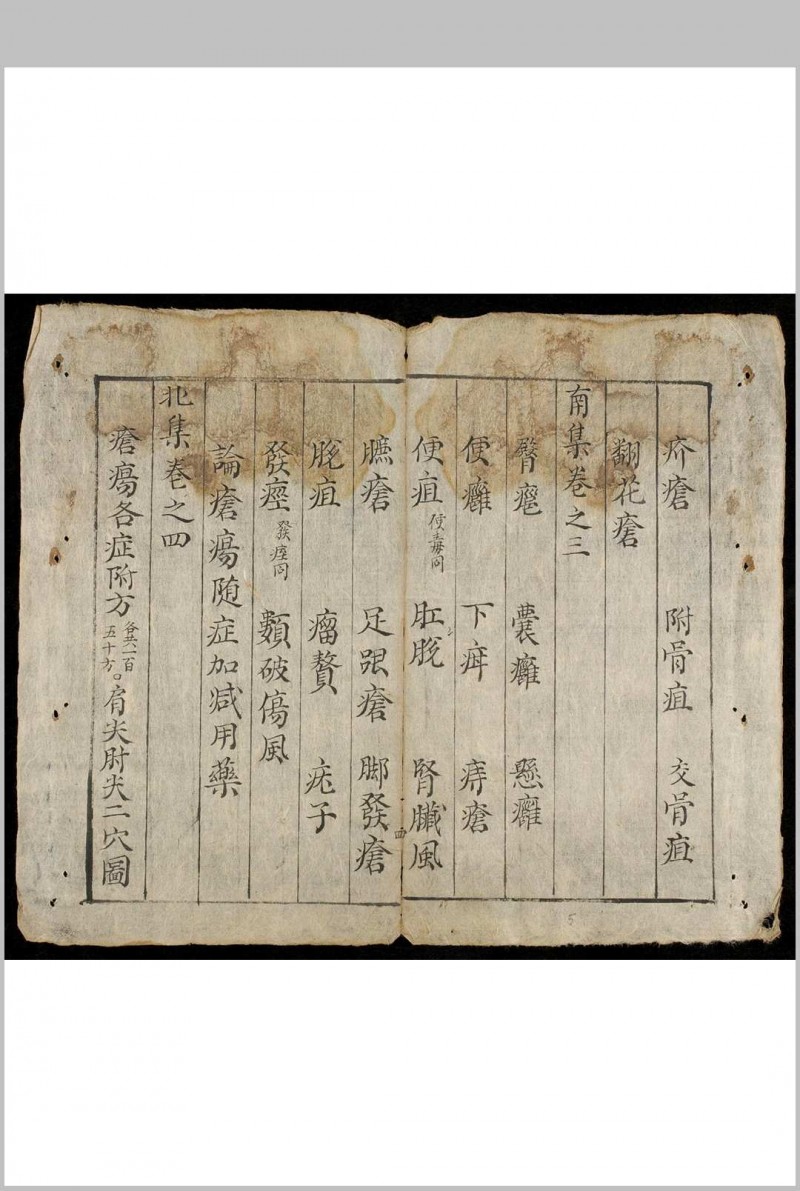 疥瘡 附骨疽 交骨疽
翻花瘡
南集卷之三
臀癰 囊癰 懸癰
便癰 下疳 痔瘡
便疽 便毒同 肛脫 腎臟風
臁瘡 足跟瘡 脚發瘡
脫疽 瘤贅 疣子
發痙 發痓同 類破傷風
論瘡瘍随症加減用藥
四
北集卷之四
瘡瘍各症附方 各共一百五十方。肩尖肘尖二穴圖
5